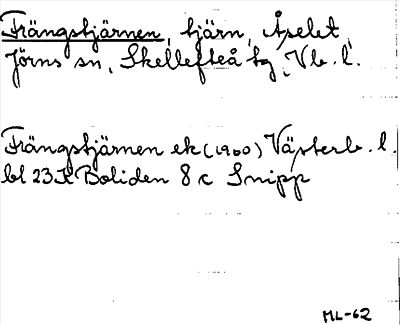 Trängstjärnen, tjärn, Åselet,
Jörns sn, Skellefteå tg, Vb. l.
Trängstjärnen ek (1900) Västerb. l.
bl 23K Boliden 8 c Snipp
ML-62